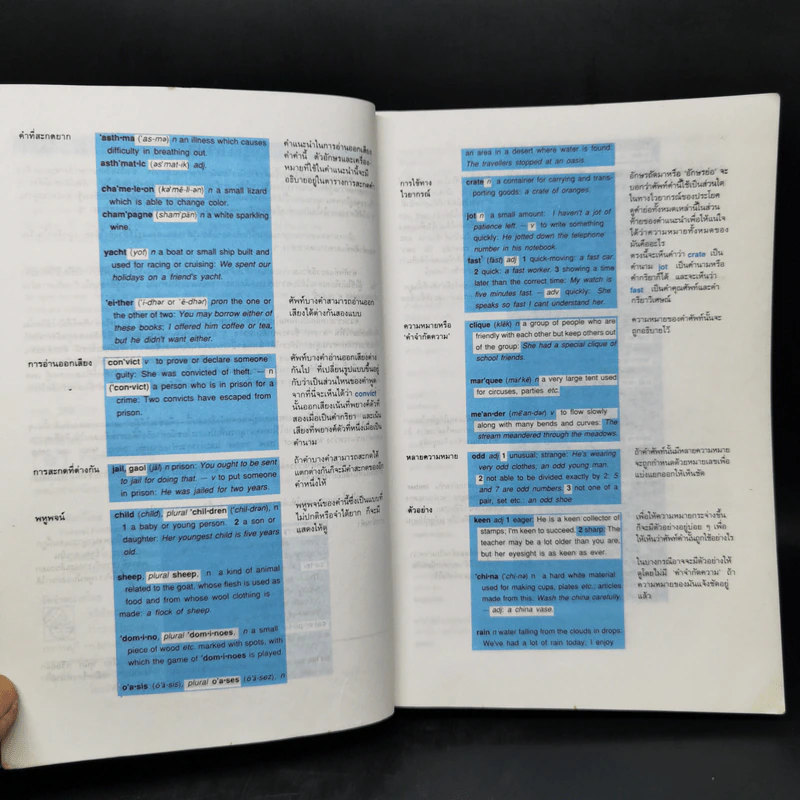 คำที่สะกดยาก
'asth·ma ('as-mə) n an illness which causes
difficulty in breathing out.
asth'mat·ic (əs'mat-ik) adj.
cha'me·le·on (kə'mē-li-ən) n a small lizard
which is able to change color.
cham'pagne (sham'pān) n a white sparkling
wine.
yacht (yot) n a boat or small ship built and
used for racing or cruising: We spent our
holidays on a friend's yacht.
'ei·ther ('ī-dhər or 'ē-dhər) pron the one or
the other of two: You may borrow either of
these books; I offered him coffee or tea,
but he didn't want either.
คำแนะนำในการอ่านออกเสียง
คำคำนี้ ตัวอักษรและเครื่อง
หมายที่ใช้ในคำแนะนำนี้จะมี
อธิบายอยู่ในตารางการสะกดคำ
ศัพท์บางคำสามารถอ่านออก
เสียงได้ต่างกันสองแบบ
การอ่านออกเสียง
con'vict v to prove or declare someone
guity: She was convicted of theft. — n
('con·vict) a person who is in prison for a
crime: Two convicts have escaped from
prison.
ศัพท์บางคำอ่านออกเสียงต่าง
กันไป ที่เปลี่ยนรูปแบบขึ้นอยู่
กับว่าเป็นส่วนไหนของคำพูด
จากที่นี่จะเห็นได้ว่า convict
นั้นออกเสียงเน้นที่พยางค์ตัวที่
สองเมื่อเป็นคำกริยา และเน้น
เสียงที่พยางค์ตัวที่หนึ่งเมื่อเป็น
คำนาม
การสะกดที่ต่างกัน
jail, gaol (jāl) n prison: You ought to be sent
to jail for doing that. — v to put someone
in prison: He was jailed for two years.
ถ้าคำบางคำสามารถสะกดได้
แตกต่างกันก็จะมีคำสะกดของอีก
คำหนึ่งให้
พหูพจน์
child (child), plural 'chil·dren ('chil-drən), n
1 a baby or young person. 2 a son or
daughter: Her youngest child is five years
old.
พหูพจน์ของคำนี้ซึ่งเป็นแบบที่
ไม่ปกติหรือจำได้ยาก ก็จะมี
แสดงให้ดู
sheep, plural sheep, n a kind of animal
related to the goat, whose flesh is used as
food and from whose wool clothing is
made: a flock of sheep.
'dom·i·no, plural 'dom·i·noes, n a small
piece of wood etc. marked with spots, with
which the game of 'dom·i·noes is played.
o'a·sis (ō'ā-sis), plural o'a·ses (ō'ā-sez), n
an area in a desert where water is found:
The travellers stopped at an oasis.
การใช้ทาง
ไวยากรณ์
crate n a container for carrying and trans-
porting goods: a crate of oranges.
jot n a small amount: I haven't a jot of
patience left. — v to write something
quickly: He jotted down the telephone
number in his notebook.
fast¹ (fast) adj 1 quick-moving: a fast car.
2 quick: a fast worker. 3 showing a time
later than the correct time: My watch is
five minutes fast. — adv quickly: She
speaks so fast I cant understand her.
อักษรถัดมาหรือ 'อักษรย่อ' จะ
บอกว่าศัพท์คำนี้ใช้เป็นส่วนใด
ในทางไวยากรณ์ของประโยค
ดูคำย่อทั้งหมดเหล่านี้ในส่วน
ท้ายของคำแนะนำเพื่อให้แน่ใจ
ได้ว่าความหมายทั้งหมดของ
มันคืออะไร
ตรงนี้จะเห็นคำว่า crate เป็น
คำนาม jot เป็นคำนามหรือ
คำกริยาก็ได้ และจะเห็นว่า
fast เป็นคำคุณศัพท์และคำ
กริยาวิเศษณ์
ความหมายหรือ
'คำจำกัดความ'
clique (klēk) n a group of people who are
friendly with each other but keep others out
of the group: She had a special clique of
school friends.
mar'quee (mär'kē) n a very large tent used
for circuses, parties etc.
me'an·der (mē'an-dər) v to flow slowly
along with many bends and curves: The
stream meandered through the meadows.
ความหมายของคำศัพท์นั้นจะ
ถูกอธิบายไว้
หลายความหมาย
odd adj 1 unusual; strange: He's wearing
very odd clothes; an odd young man.
2 not able to be divided exactly by 2: 5
and 7 are odd numbers. 3 not one of a
pair, set etc.: an odd shoe
ถ้าคำศัพท์นั้นมีหลายความหมาย
จะถูกกำหนดด้วยหมายเลขเพื่อ
แบ่งแยกออกให้เห็นชัด
ตัวอย่าง
keen adj 1 eager: He is a keen collector of
stamps; I'm keen to succeed. 2 sharp: The
teacher may be a lot older than you are,
but her eyesight is as keen as ever.
เพื่อให้ความหมายกระจ่างขึ้น
ก็จะมีตัวอย่างอยู่บ่อย ๆ เพื่อ
ให้เห็นว่าศัพท์คำนั้นถูกใช้อย่างไร
'chi·na ('chī-nə) n a hard white material
used for making cups, plates etc.; articles
made from this: Wash the china carefully.
— adj: a china vase.
ในบางกรณีอาจจะมีตัวอย่างให้
ดูโดยไม่มี 'คำจำกัดความ' ถ้า
ความหมายของมันแจ้งชัดอยู่
แล้ว
rain n water falling from the clouds in drops:
We've had a lot of rain today; I enjoy